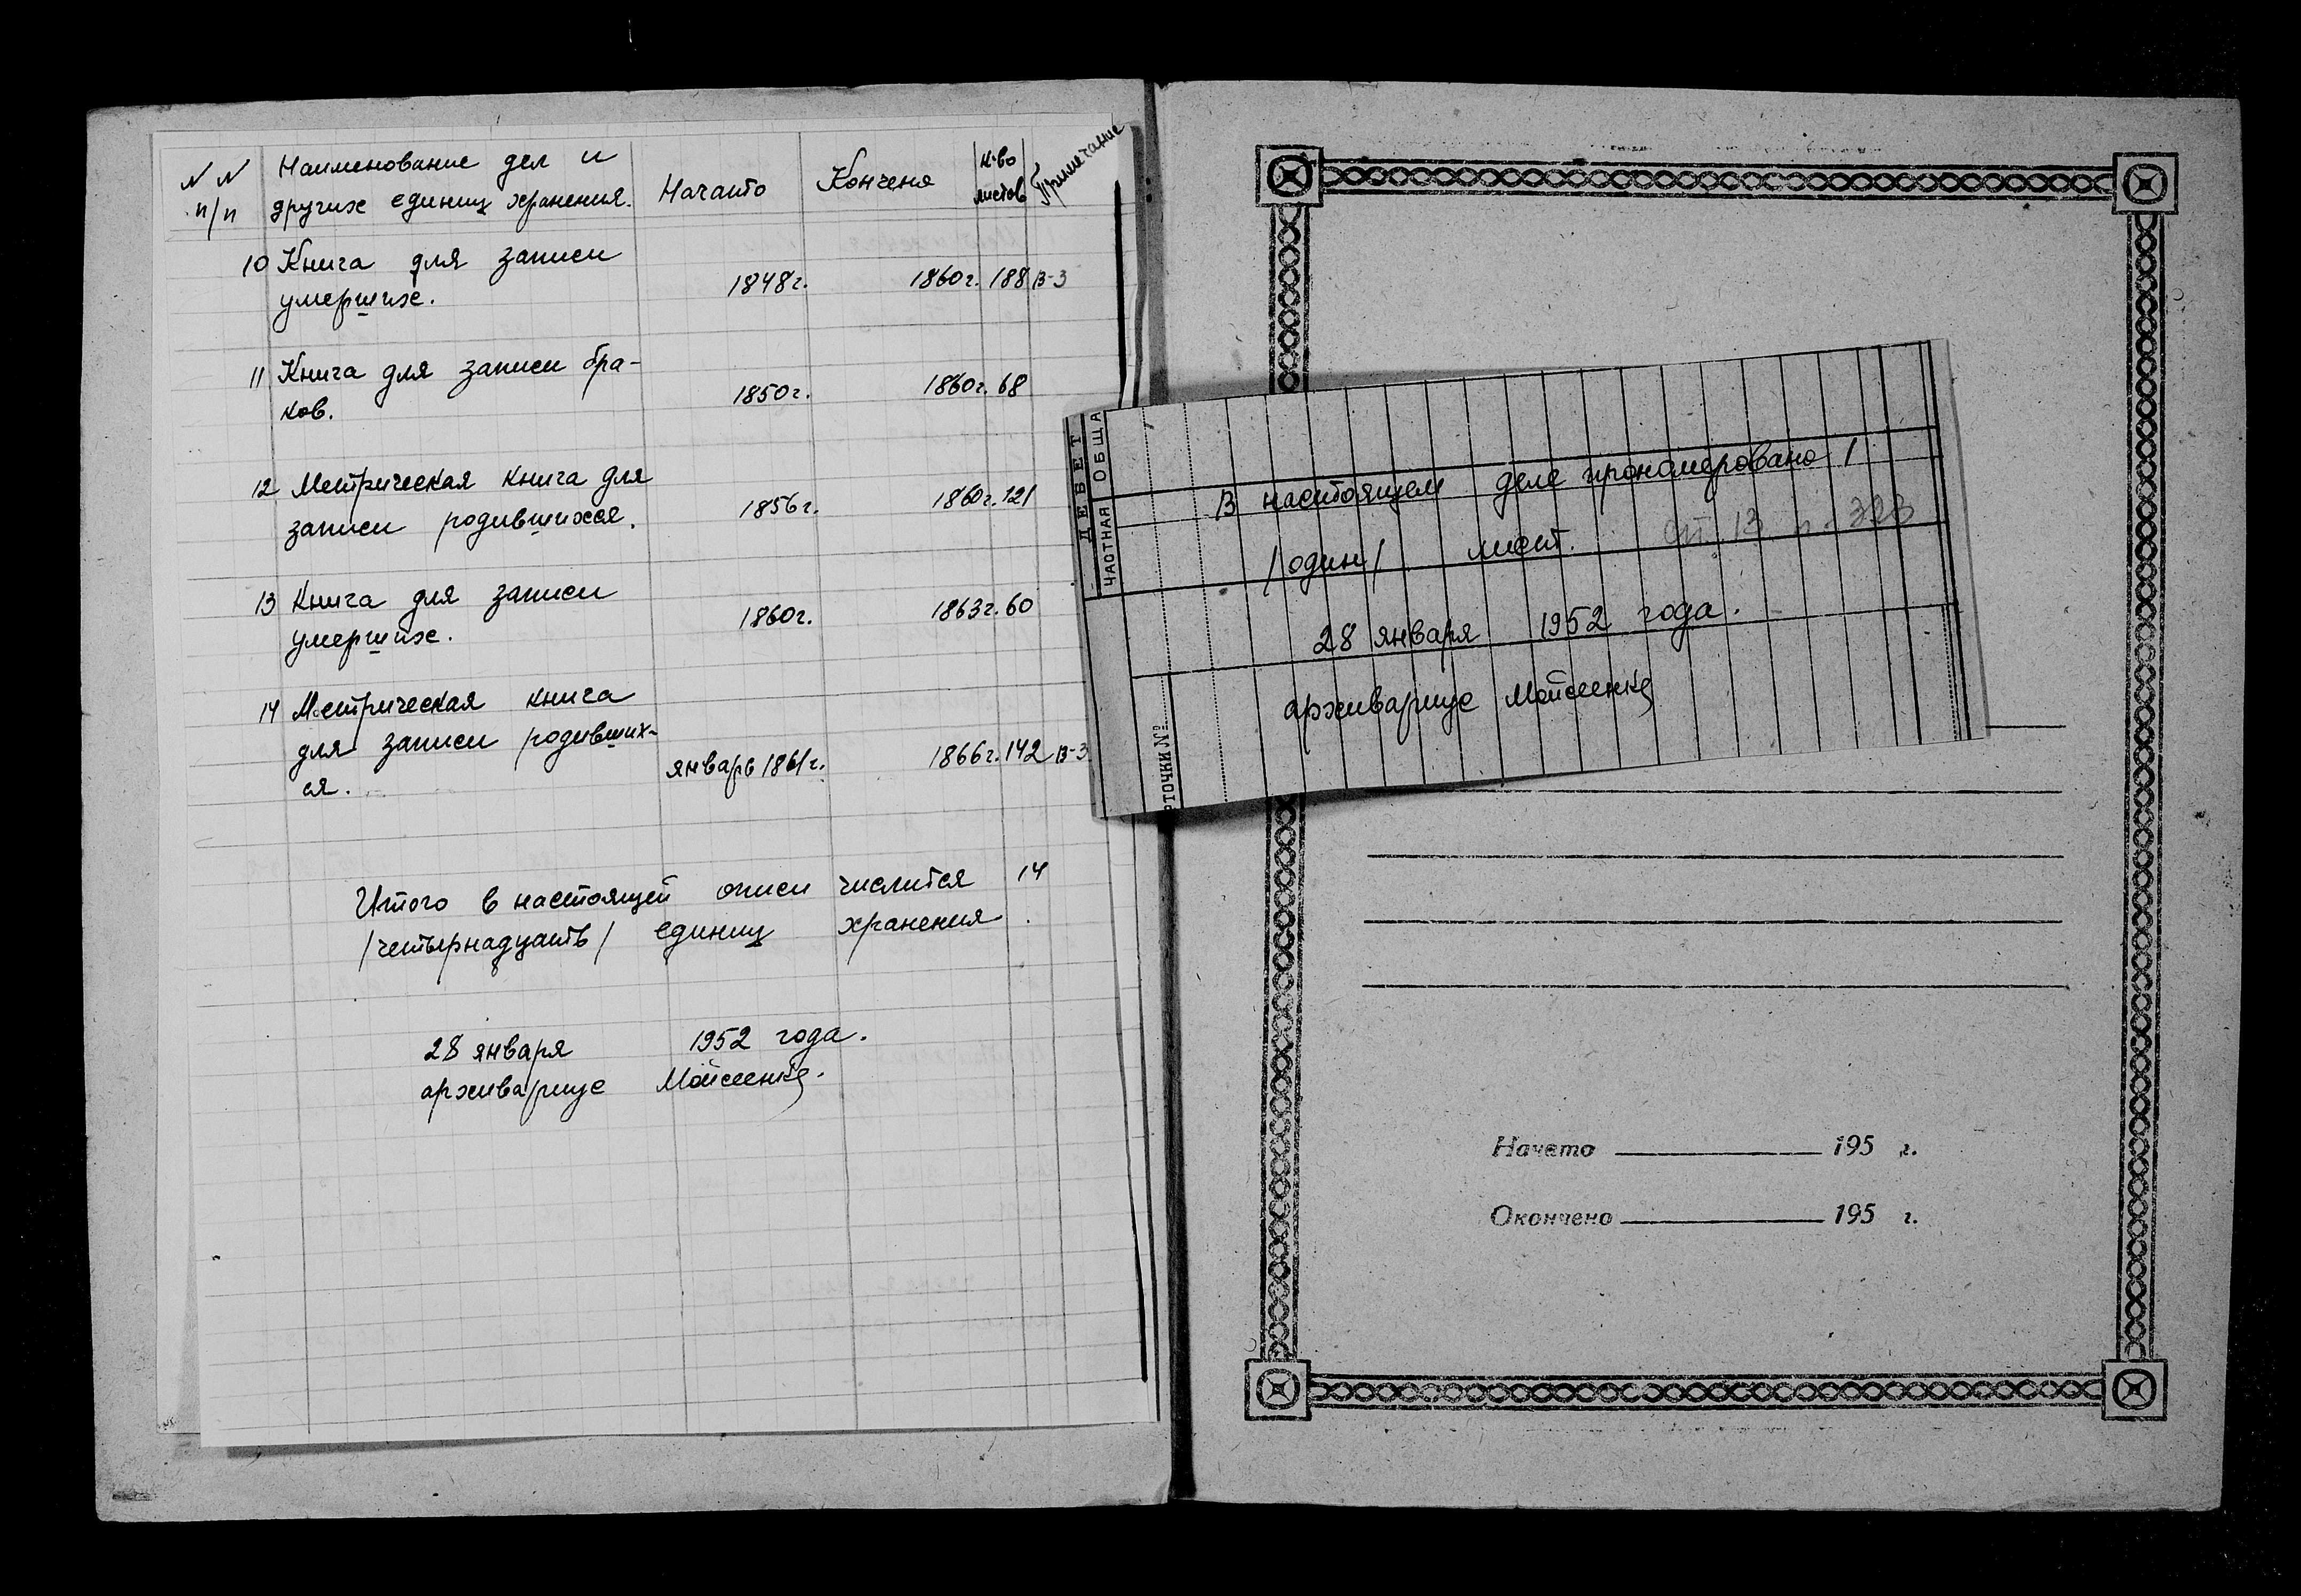 №№ Наименование дел и
п/п других единиц хранения. Начато Кончено к-во листов Примечание
10 Книга для записи
умерших. 1848г. 1860г. 188 В-3
11 Книга для записи бра-
ков. 1850г. 1860г. 68
12 Метрическая книга для
записи родившихся. 1856г. 1860г. 121
13 Книга для записи
умерших. 1860г. 1863г. 60
14 Метрическая книга
для записи родивших-
ся. январь 1861г. 1866г. 142 В-3
Итого в настоящей описи числится 14
/четырнадцать/ единиц хранения.
28 января 1952 года.
архивариус
ДЕБЕТ
ЧАСТНАЯ ОБЩА
В настоящем деле прономеровано 1
/один/ лист.
28 января 1952 года.
архивариус
РТОЧКИ №
Начато 195 г.
Окончено 195 г.